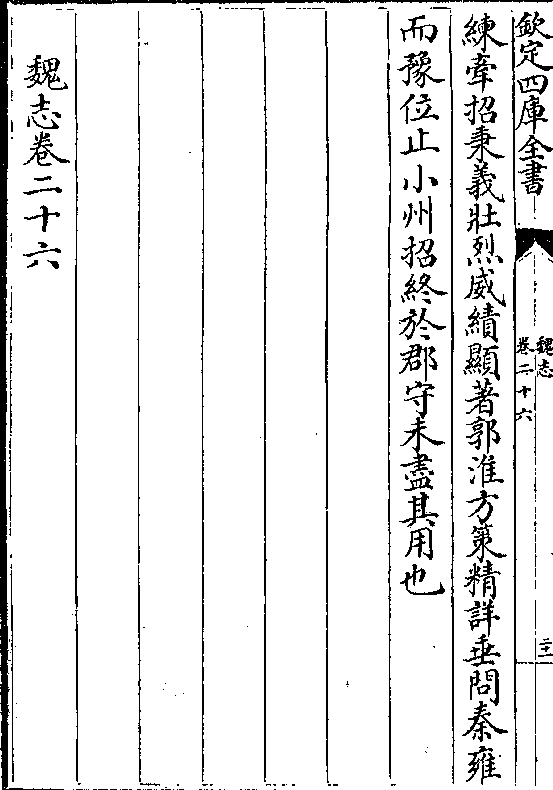 欽定四庫全書
魏志
卷二十六
二十一
練牽招秉義壯烈威績顯著郭淮方策精詳垂問秦雍
而豫位止小州招終於郡守未盡其用也
魏志卷二十六